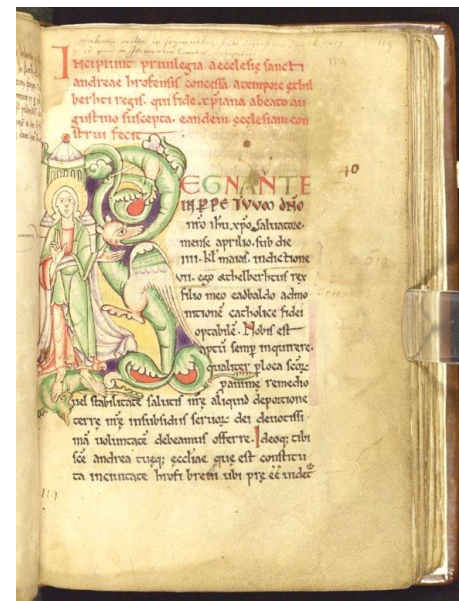 Incipiunt priuilegia aecclesię sancti
andreae hrofensis concessa a tempore ethil
berhti regis. qui fide xp̄iana a beato au
gustino suscepta. eandem ęcclesiam con
strui fecit
REGNANTE
IN PPETVVM dn̄o
nr̄o ihu xp̄o saluatore.
mense aprilio. sub die
iiii. kl̄ maias. indictione
vii. ego æthelberhtus rex
filio meo eadbaldo admo
nitione catholice fidei
optabilē. Nobis est
aptū semp̄ inquirere.
qualiter p loca scōrꝫ
p animę remedio
uel stabilitate salutis nr̄ę aliquid de portione
terrę nr̄ę in subsidiis seruorꝫ dei deuotissi
mā uoluntatē debeamus offerre. Ideoqꝫ tibi
sc̄e andrea tuęqꝫ ęccliae que est constitu
ta in ciuitate hrofi breui ubi prę eē uidet᷑
40